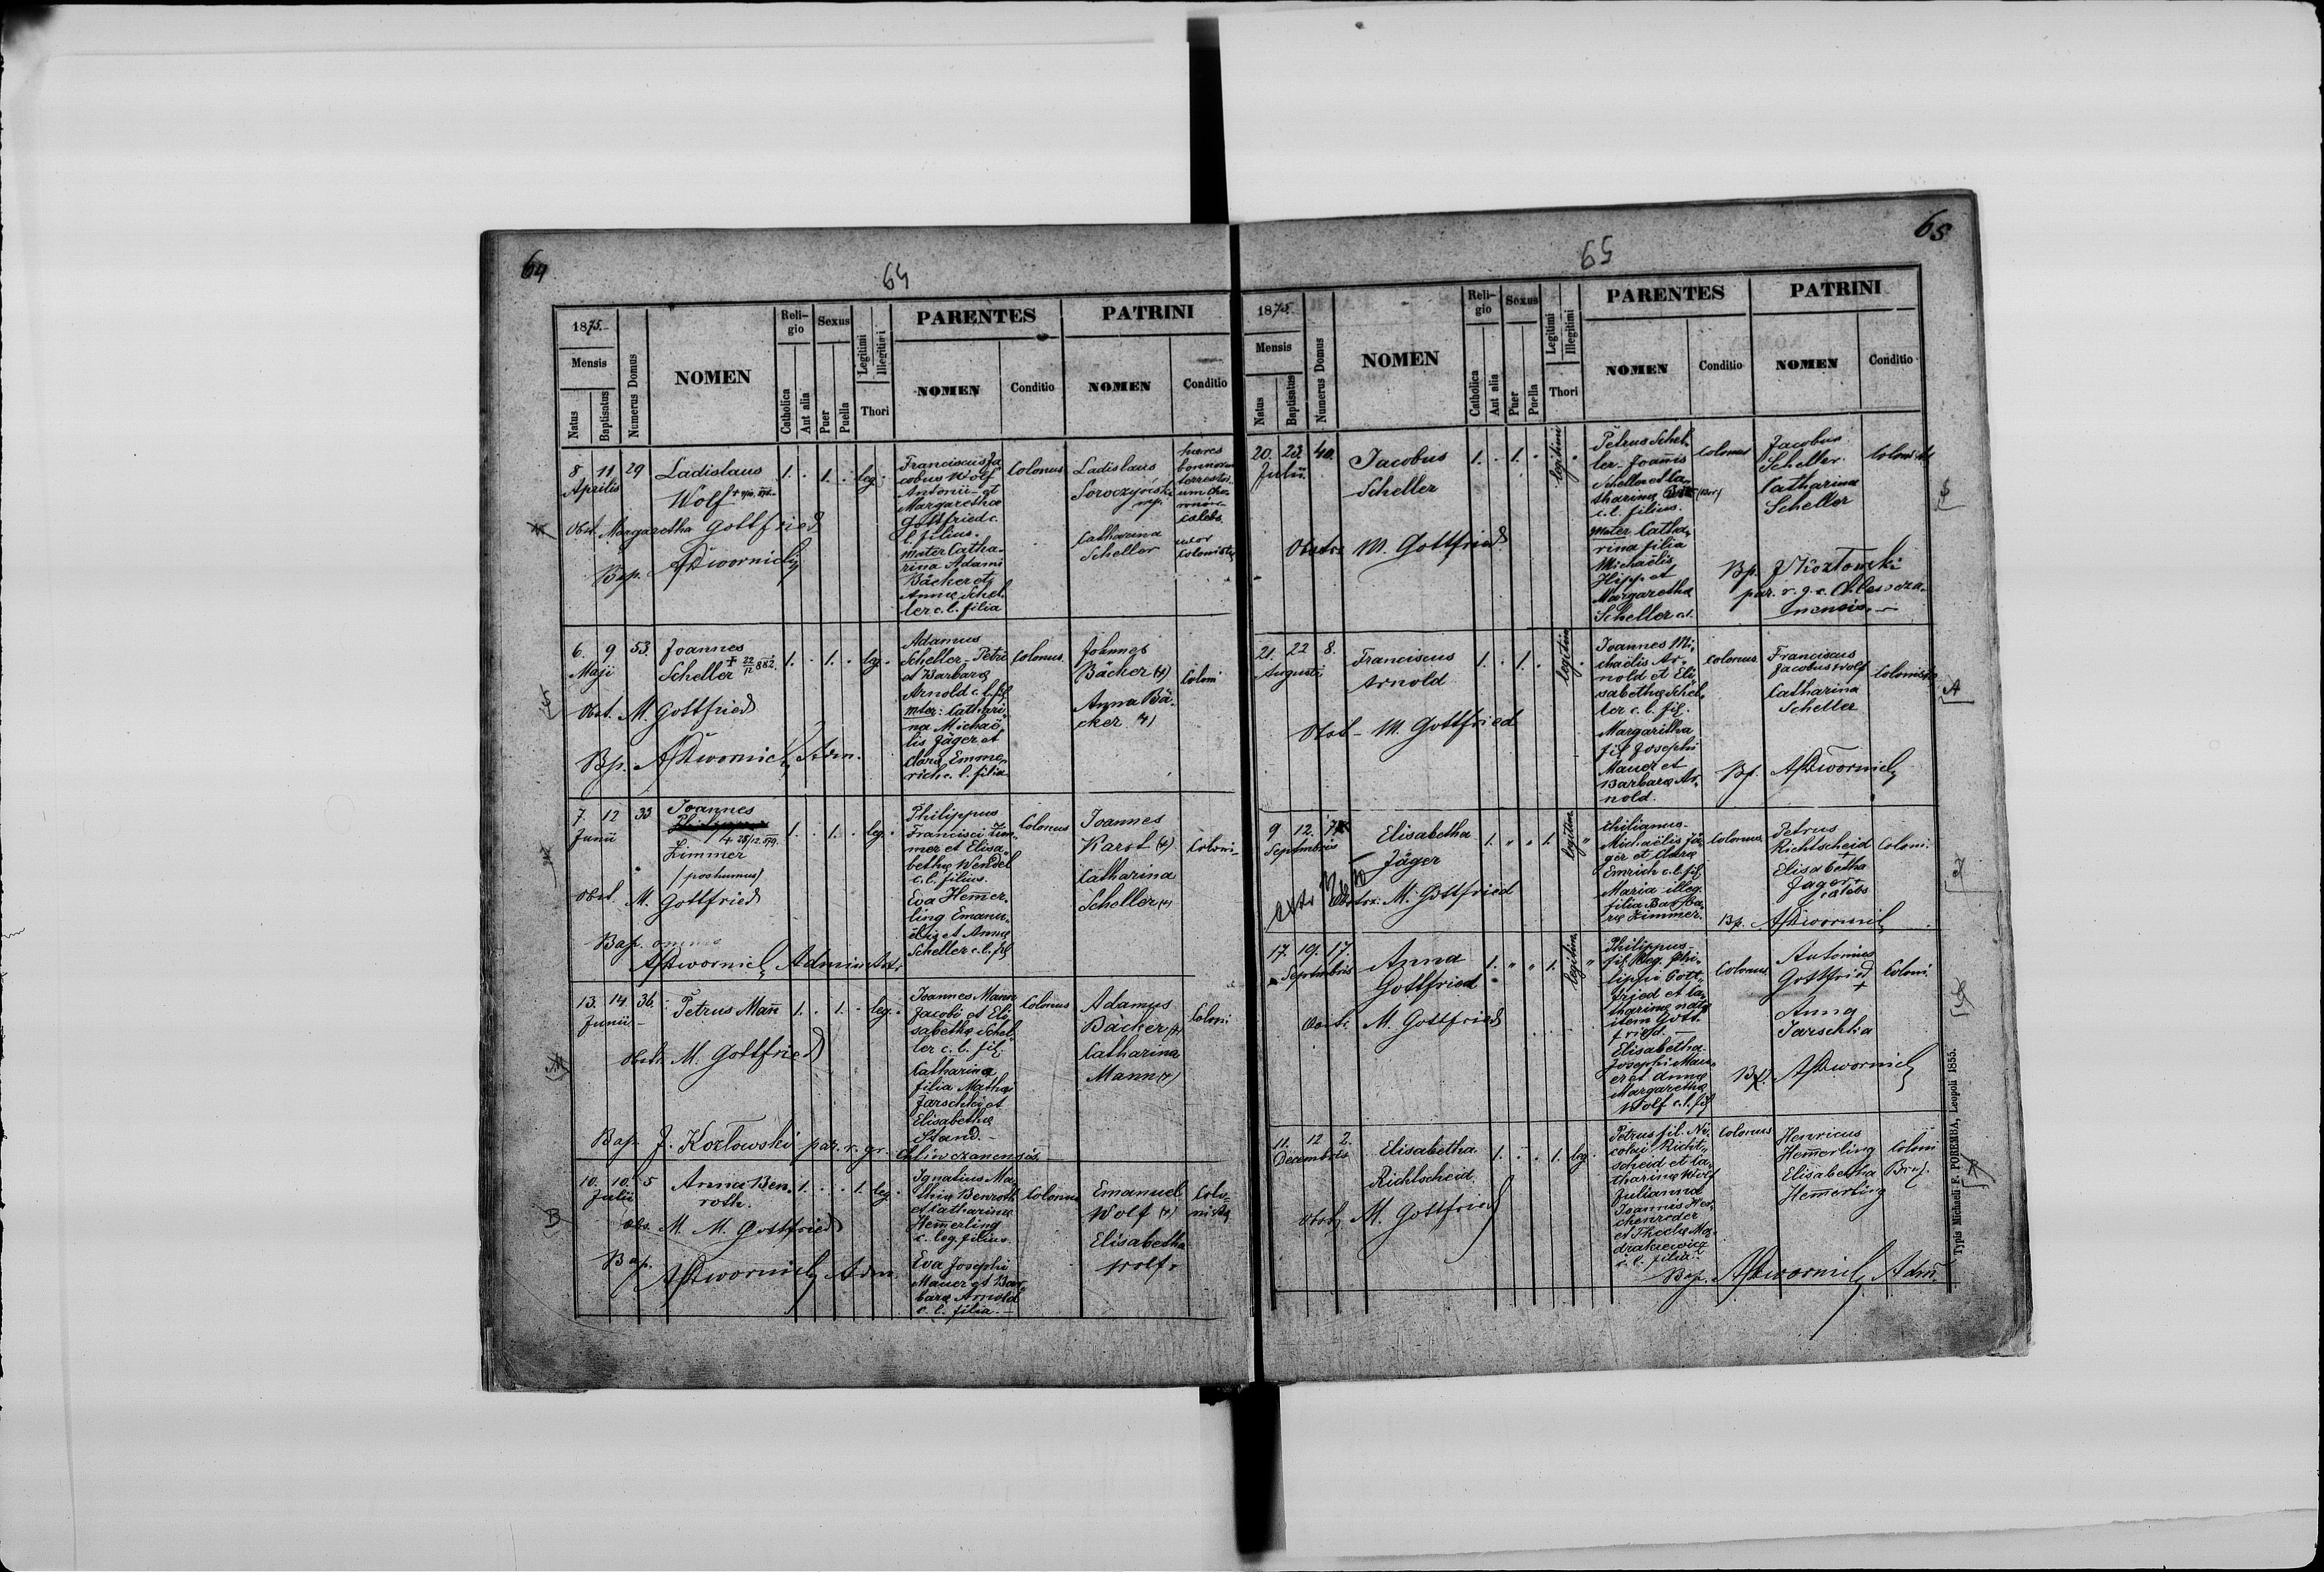 64
64
1875.
Mensis
Natus
Baptisatus
Numerus Domus
NOMEN
Reli-
gio
Catholica
Aut alia
Sexus
Puer
Puella
Legitimi
Illegitimi
Thori
PARENTES
NOMEN
Conditio
PATRINI
NOMEN
Conditio
8 11 29
Aprilis
Ladislaus
Wolf
1. . 1. . leg.
Obst. Margaretha Gottfried
Bap. Dwornicky
Franciscus Ja
cobus Wolf
Antonii et
Margaretha
Gottfried c.
l. filius.
Mater Catha-
rina Adami
Bäcker et
Anna Schel
ler c. l. filia
Colonus
Ladislaus
mp.
Catharina
Scheller
haeres
bonorum
terrestri-
um
uxor
Coloniste
6. 9 53.
Maji
Joannes
Scheller + 22/12 882.
1. . 1. . leg.
Obst. M. Gottfried
Bp. Adm.
Adamus
Scheller - Petri
et Barbara
Arnold c. l. fil
mter: Cathari
na Michaë
lis Jäger et
Clara Emme,
rich c. l. filia
Colonus
Johannes
Bäcker (+)
Anna Bä-
cker (+)
Coloni
7. 12 33
Junii
Joannes
+ 28/12. 879.
Zimmer
(posthumus)
1. . 1. . leg.
Obst. M. Gottfried
Bap.
Philippus
Francisci Zim
mer et Elisa
betha Wendel
c. l. filius.
Eva Hem̄er
ling Emanu
elis et Anna
Scheller c. l. fil
Colonus
Joannes
Karst (+)
Catharina
Scheller (+)
Coloni
13. 14. 36.
Junii
Petrus Man̄
1. . 1. . leg.
Obst. M. Gottfried
Bap. J. Kozlowski par. r. gr.
Joannes Mann
Jacobi et Eli
sabetha Schel
ler c. l. fil
Catharina
filia Mathei
Jarschki et
Elisabetha
Stand.
Colonus
Adamus
Bäcker (+)
Catharina
Mann (+)
Coloni
10. 10. 5
Julii
Anna Ben-
roth.
1. . . 1. leg.
Obs. M. M. Gottfried
Bap. Adm.
Ignatius Ma
thia Benroth
et Catharina
Hem̄erling
c. leg. filius.
Eva Josephi
Mauer et Bar
bara Arnold
c. l. filia.
Colonus
Emanuel
Wolf (+)
Elisabetha
Wolf.
Colo-
nista
B
65
65
1875.
Mensis
Natus
Baptisatus
Numerus Domus
NOMEN
Reli-
gio
Catholica
Aut alia
Sexus
Puer
Puella
Legitimi
Illegitimi
Thori
PARENTES
NOMEN
Conditio
PATRINI
NOMEN
Conditio
20. 22. 40.
Julii
Jacobus
Scheller
1. . 1. . legitimi
M. Gottfried
Petrus Schel
ler - Joannis
Scheller et Ca
tharina
c. l. filius.
Mater Catha
rina filia
Michaëlis
Hipp et
Margaretha
Scheller
Colonus
Jacobus
Scheller
Catharina
Scheller
Bp. J Kozlowski
par. r. g. c.
S
21. 22 8.
Augusti
Franciscus
Arnold
1. . 1. . legitim
Obst - M. Gottfried
Joannes Mi
chaëlis Ar-
nold et Eli
sabetha Schel
ler c. l. fil.
Margaritha
fil Josephi
Mauer et
Barbara Ar,
nold.
Colonus
Franciscus
Jacobus Wolf
Catharina
Scheller
Bp.
A
9 12.
Septembris
Elisabetha
Jäger
1. " " 1. legitim "
M. Gottfried
Michaëlis Jä
ger et Clara
Emrich c. l. fil
Maria illeg.
filia Barba
ra Zimmer.
Colonus
Petrus
Richtscheid
Elisabetha
Jager
Coloni.
Bp.
J
17. 19. 17.
Septembris
Anna
Gottfried
1. " " 1. legitim
M. Gottfried
Philippus
fil illeg. Phi
lippi Gott
fried et Ca
tharina nata
item Gott
fried.
Elisabetha
Josephi Mau
er et Anna
Margaretha
Wolf c. l. fil
Colonus
Antonius
Gottfried
+
Anna
Jarschkia
Coloni.
Bp.
11. 12 2.
Decembris
Elisabetha
Richtscheid
1. . . 1. leg.
M. Gottfried
Petrus fil. Ni
colai Richt
scheid et Ca
tharina Wolf
Julianna
Joannis
et Thecla
c. l. filia.
Colonus
Henricus
Hem̄erling
Elisabetha
Hem̄erling
Coloni
Bap. Adm.
R
Typis Michaeli F. POREMBA, Leopoli 1855.